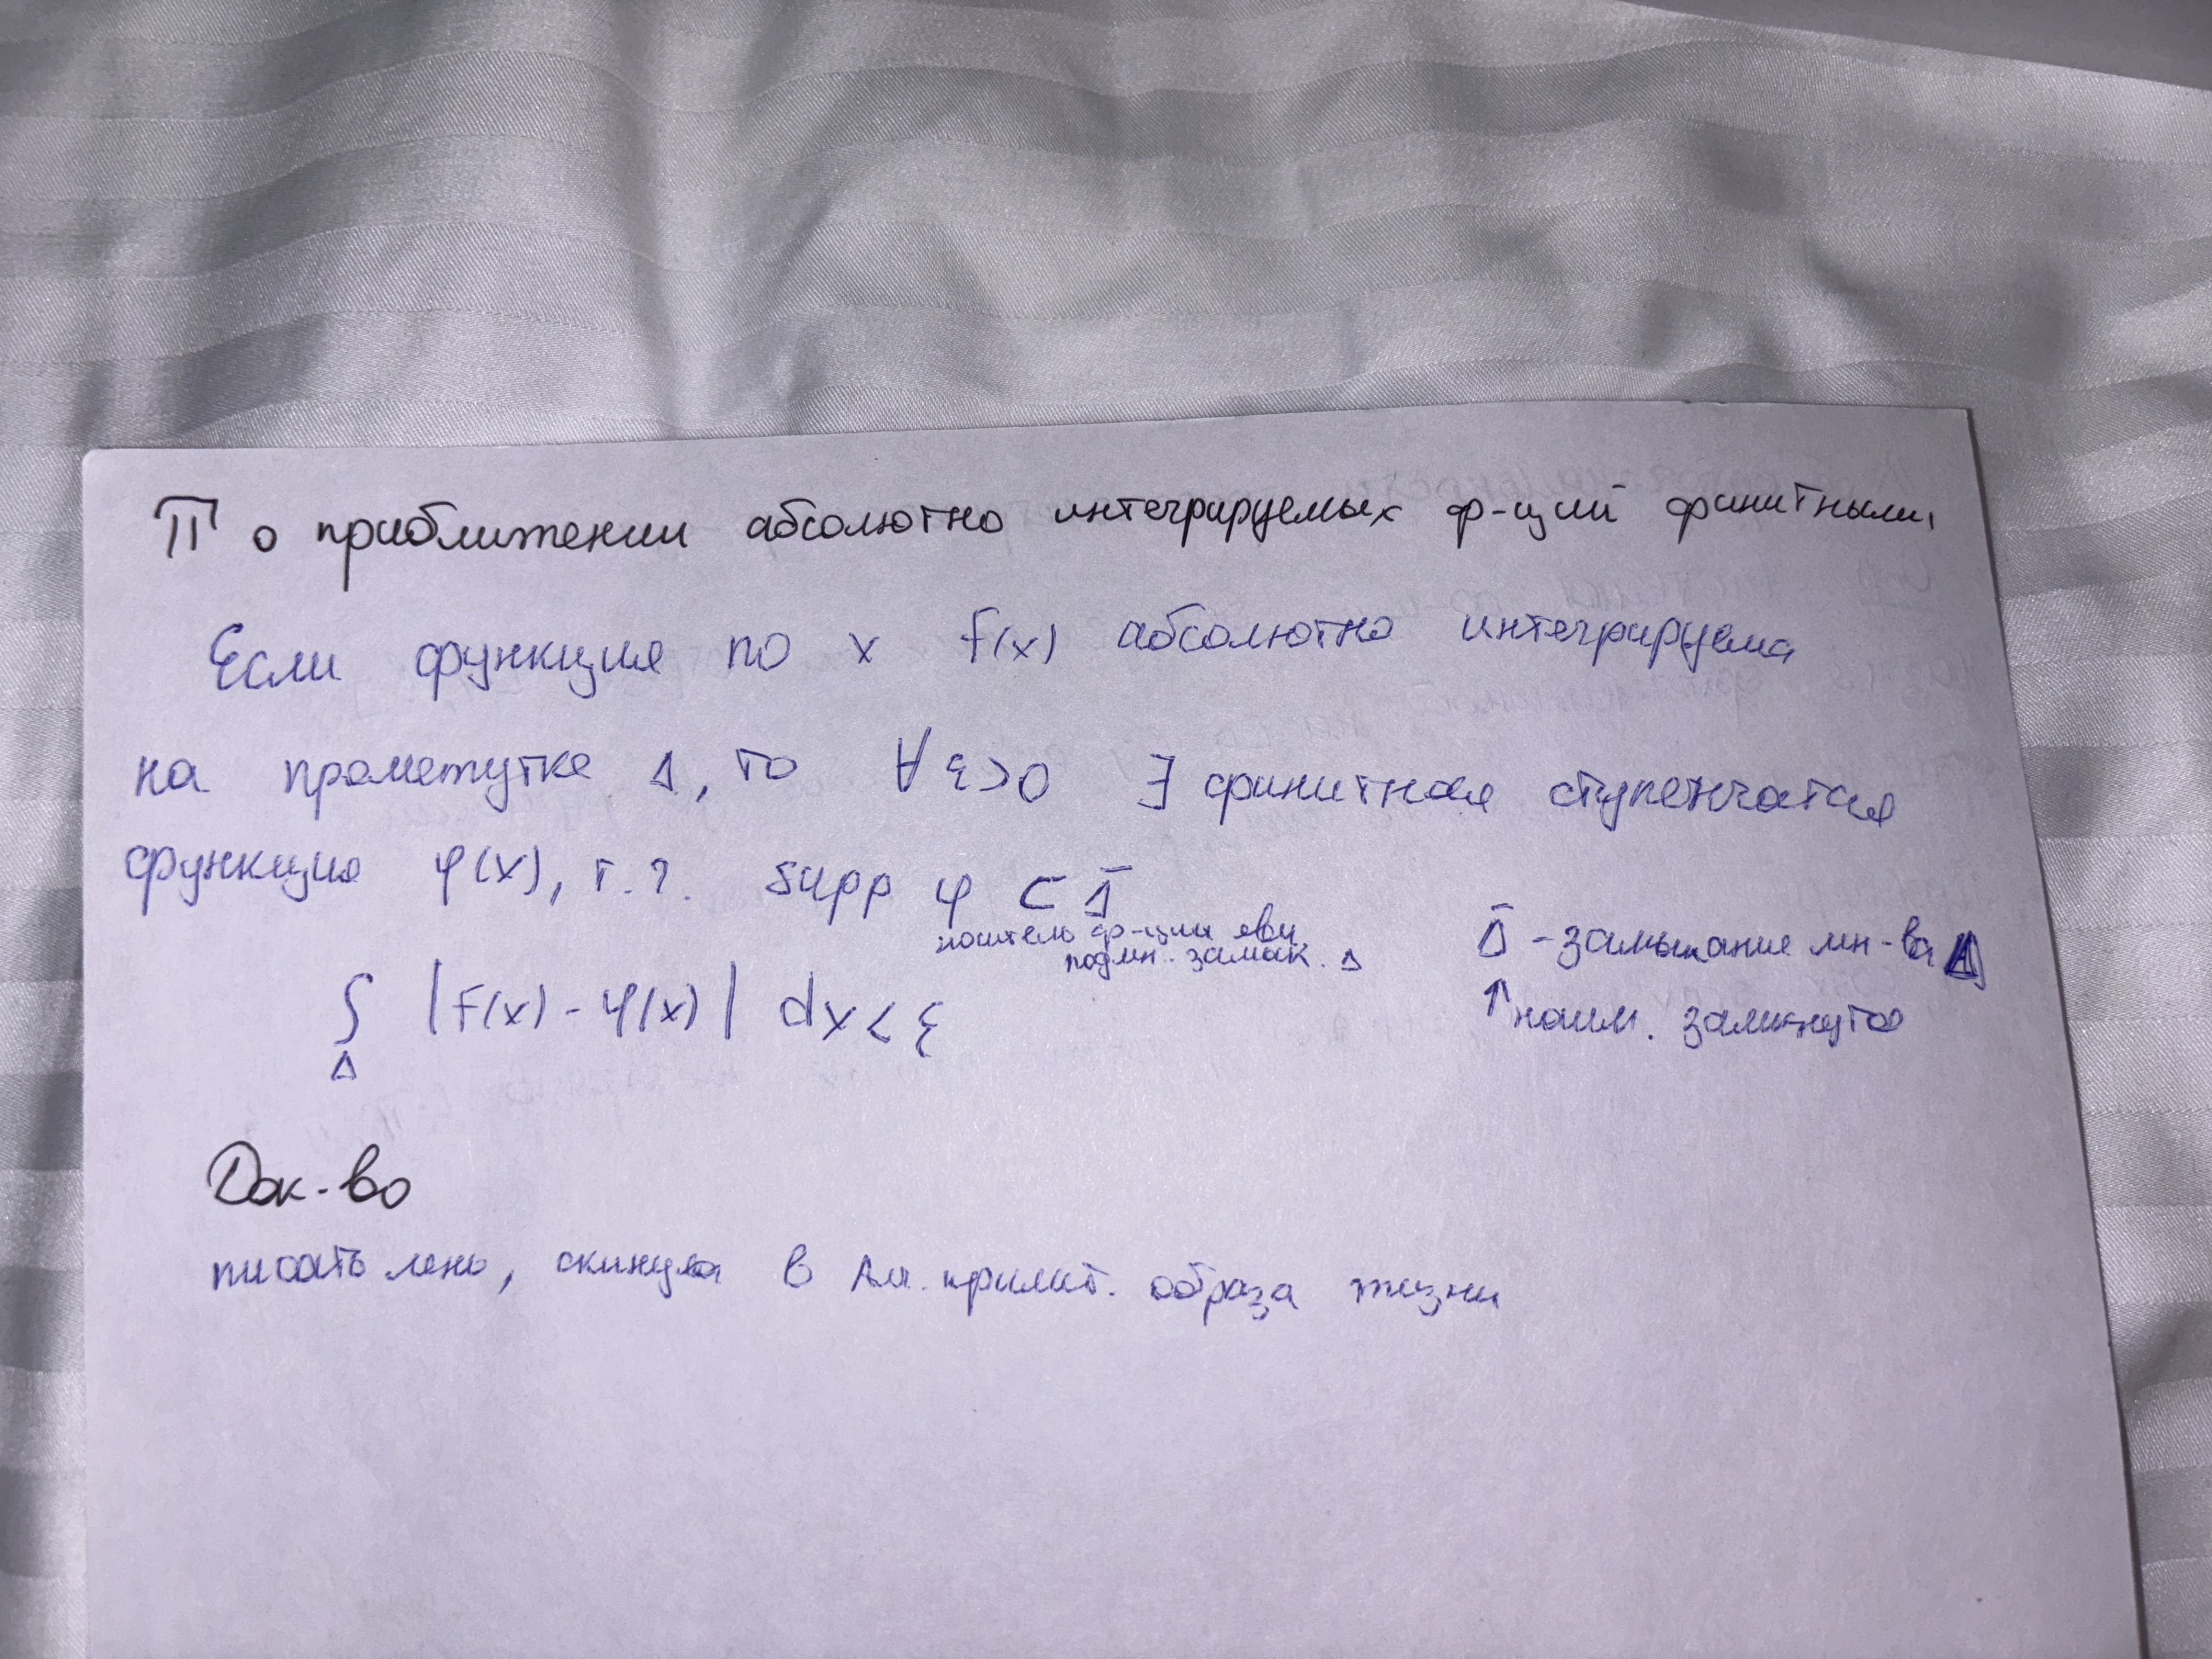 П о приближении абсолютно интегрируемых ф-ций финитными
Если функция по x f(x) абсолютно интегрируема
на промежутке Δ, то ∀ ε>0 ∃ финитная ступенчатая
функция φ(x), т.ч. supp φ ⊂ Δ̄
носитель ф-ции явл
подмн. замык. Δ
Δ̄ - замыкание мн-ва Δ
↑ наим. замкнутое
∫ |f(x) - φ(x)| dx < ε
Δ
Док-во
писать лень, скинула в образа жизни